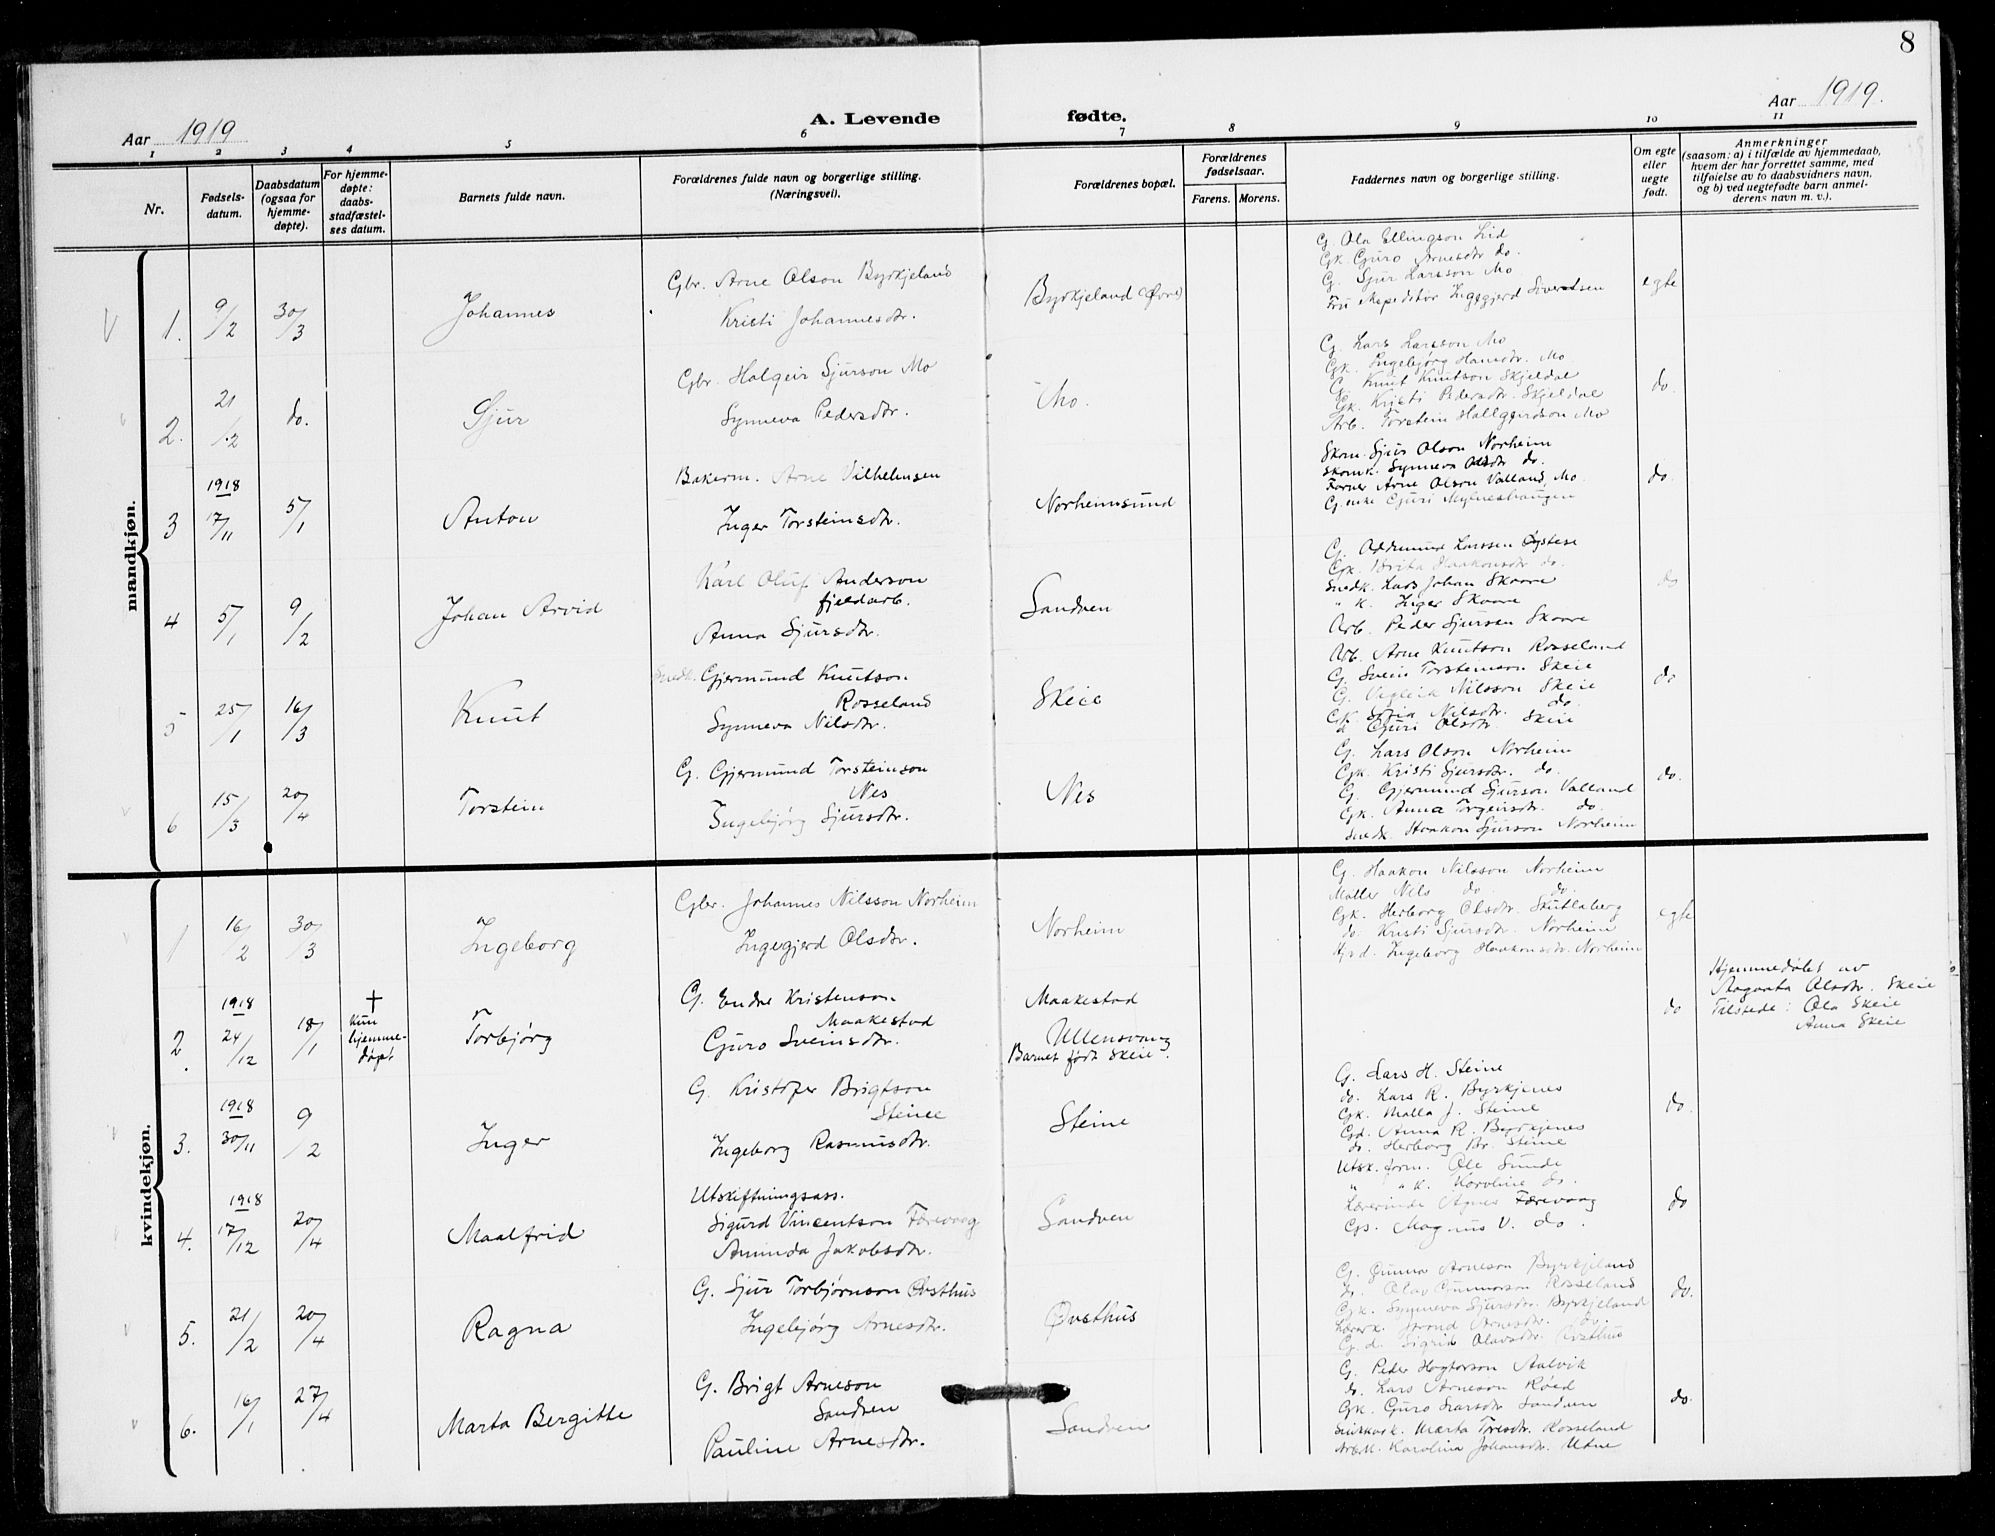 8
Aar 1919
A. Levende fødte.
Aar 1919.
1 2 3 4 5 6 7 8 9 10 11
Nr.
Fødsels-
datum.
Daabsdatum
(ogsaa for
hjemme-
døpte).
For hjemme-
døpte:
daabs-
stadfæstel-
ses datum.
Barnets fulde navn.
Forældrenes fulde navn og borgerlige stilling.
(Næringsvei).
Forældrenes bopæl.
Forældrenes
fødselsaar.
Farens. Morens.
Faddernes navn og borgerlige stilling.
Om egte
eller
uegte
født.
Anmerkninger
(saasom: a) i tilfælde av hjemmedaab,
hvem der har forrettet samme, med
tilføielse av to daabsvidners navn,
og b) ved uegtefødte barn anmel-
derens navn m. v.).
mandkjøn.
1. 9/2 30/3 Johannes
Gbr. Arne Olson Byrkjeland
Kristi Johannesdtr.
Byrkjeland (Øvre)
G. Ola Ellingson Lid
Gk. Guro Arnesdtr do.
G. Sjur Larsson Mo
Fru Ingegjerd Sivertsen
egte
2. 21/2 do. Sjur
Gbr. Halgeir Sjurson Mo
Synneva Pedersdtr.
Mo.
G. Lars Larsson Mo
Gk. Ingebjørg Hansdtr. Mo
G. Knut Knutson Skjeldal
Gk. Kristi Pedersdtr. Skjeldal
Arb. Torstein Hallgeirdson Mo
do.
3 1918 17/11 5/1 Anton
Bakerm. Arne Vilhelmsen
Inger Torsteinsdtr.
Norheimsund
Skom. Sjur Olson Norheim
Skomk. Synneva Olsdtr do.
Former Arne Olson Valland, Mo
G. enke Guri Mylneshaugen
do.
4 5/1 9/2 Johan Arvid
Karl Oluf Anderson
fjeldarb.
Anna Sjursdtr.
Sandven
G. Oddmund Larssen Øystese
Gk. Brita Haakonsdtr do.
Snedk. Lars Johan Skaare
" k. Inger Skaare
Arb. Peder Sjursen Skaare
do
5 25/1 16/3 Knut
Snedk. Gjermund Knutson
Rosseland
Synneva Nilsdtr.
Skeie
Arb. Arne Knutson Rosseland
G. Svein Torsteinson Skeie
G. Nilsson Skeie
Gk. Nilsdtr. do.
d Guri Olsdtr. Skeie
do
6 15/3 20/4 Torstein
G. Gjermund Torsteinson
Nes
Ingebjørg Sjursdtr.
Nes
G. Lars Olson Norheim
Gk. Kristi Sjursdtr. do.
G. Gjermund Sjurson Valland
Gk. Anna Torgeirsdtr. do.
Snedk. Haakon Sjurson Norheim
do.
kvindekjøn.
1 16/2 30/3 Ingeborg
Gbr. Johannes Nilsson Norheim
Ingegjerd Olsdtr.
Norheim
G. Haakon Nilsson Norheim
Møller Nils do do.
Gk. Herborg Olsdtr. Skutlaberg
do. Kristi Sjursdtr. Norheim
Ingeborg Haakonsdtr. Norheim
egte
2. 1918 24/12 18/1 † Kun
hjemme-
døpt
Torbjørg
G. Endre Kristenson
Maakestad
Guro Sveinsdtr.
Maakestad
Ullensvang
Barnet født Skeie.
do
Hjemmedøbt av
Magnta Olsdtr. Skeie
Tilstede: Ola Skeie
Anna Skeie
3. 1918 30/11 9/2 Inger
G. Kristofer Brigtson
Steine
Ingeborg Rasmusdtr.
Steine
G. Lars H. Steine
do. Lars R. Byrkjenes
Gk. Malla J. Steine
Gd. Anna R. Byrkjenes
do. Herborg Br. Steine
do.
4. 1918 17/12 20/4 Maalfrid
Utskiftningsass.
Sigurd Vincentson Færevaag
Aminda Jakobsdtr.
Sandven
Utsk. form. Ole Sunde
" "k. Karoline do.
Lærerinde Agnes Færevaag
Gs. Magnus V. do.
do
5. 21/2 20/4 Ragna
G. Sjur Torbjørnson Øvsthus
Ingebjørg Arnesdtr.
Øvsthus
G. Gunna Arneson Byrkjeland
do. Olav Gunnarson Rosseland
Gk. Synneva Sjursdtr. Byrkjeland
Lærerk. Arnesdtr. do.
G.d. Sigrid Olavsdtr. Øvsthus
do.
6. 16/1 27/4 Marta Bergitte
G. Brigt Arneson
Sandven
Pauline Arnesdtr.
Sandven
G. Peder Aalvik
do. Lars Arneson Røed
Gk. Guro Larsdtr Sandven
Marta Toresdtr. Rosseland
Karolina Johansdtr. Utne
do.